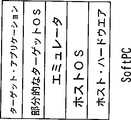 ターゲット・アプリケーション
部分的なターゲットOS
エミュレータ
ホストOS
ホスト・ハードウエア
SoftPC